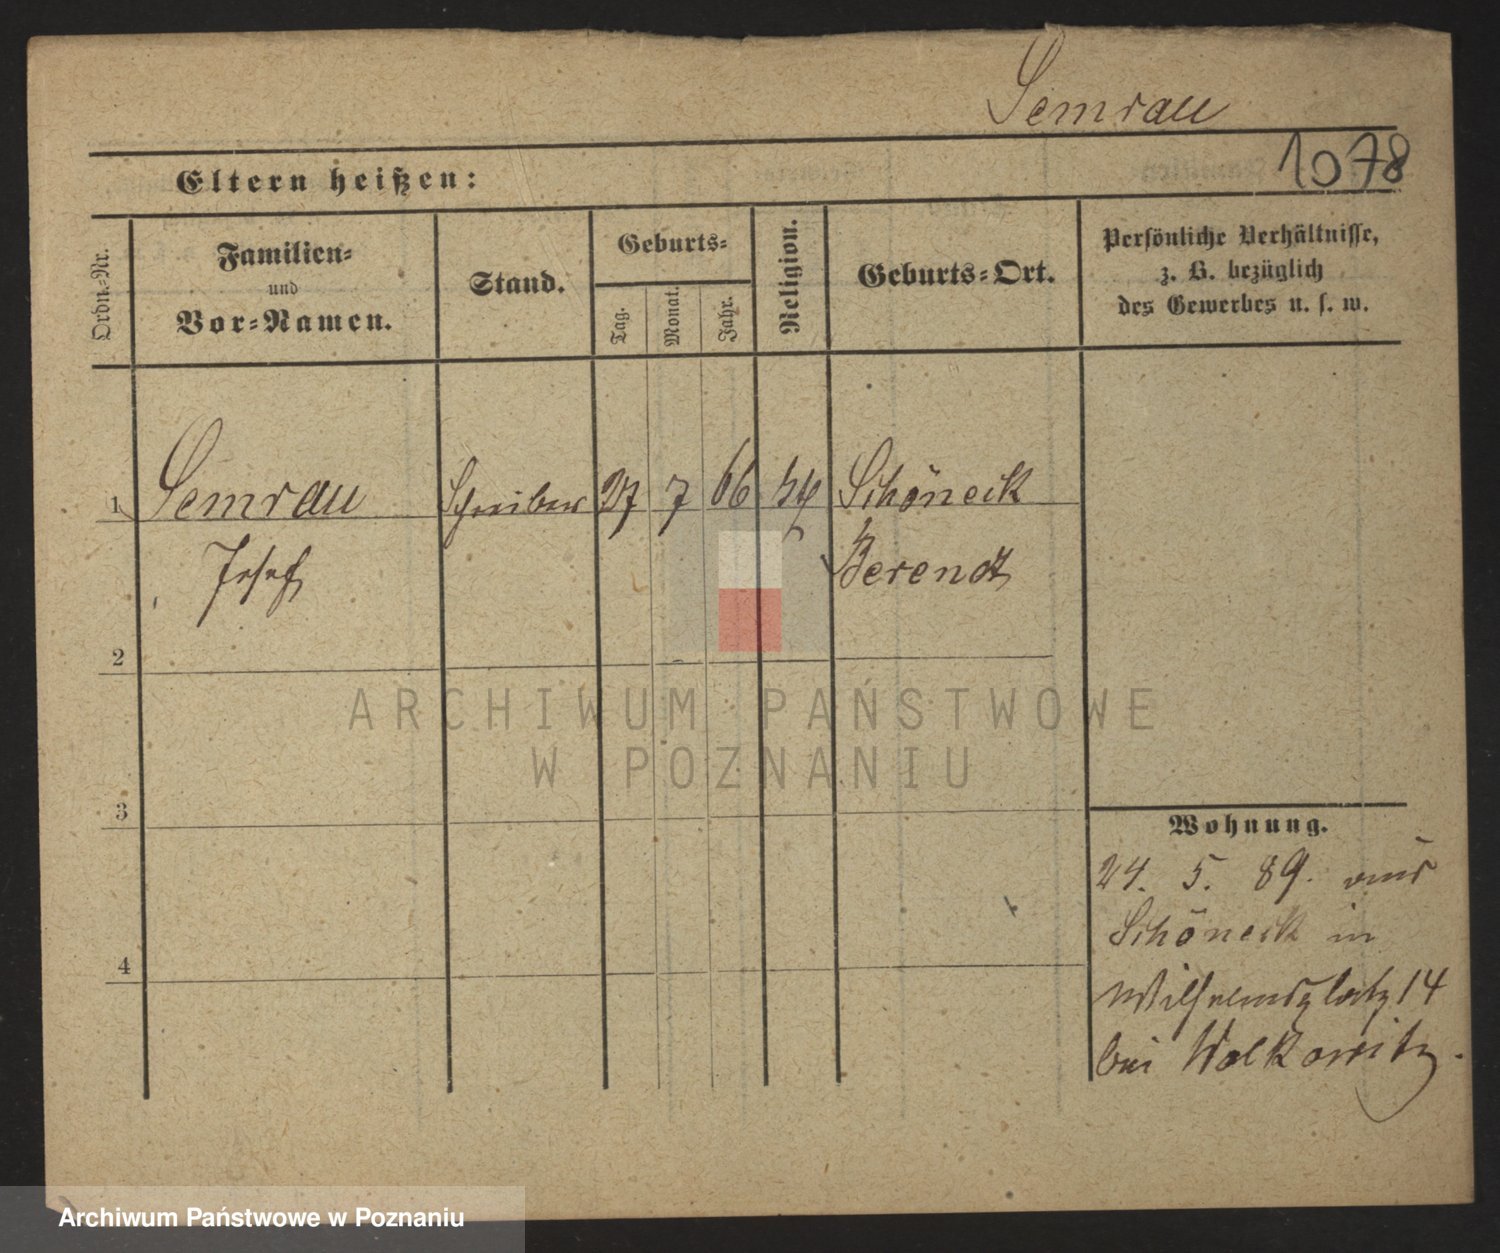 Semrau
1078
Eltern heißen:
Ordn.-Nr.
Familien-
und
Vor-Namen.
Stand.
Geburts-
Tag.
Monat.
Jahr.
Religion.
Geburts-Ort.
Persönliche Verhältnisse,
z. B. bezüglich
des Gewerbes u. s. w.
1 Semrau Schreiber 27 7 66 Schöneck
Josef Berendt
2
3
4
Wohnung.
24. 5. 89. aus
Schöneck in
Wilhelmsplatz 14
bei Wolkowitz.
ARCHIWUM PAŃSTWOWE
W POZNANIU
Archiwum Państwowe w Poznaniu